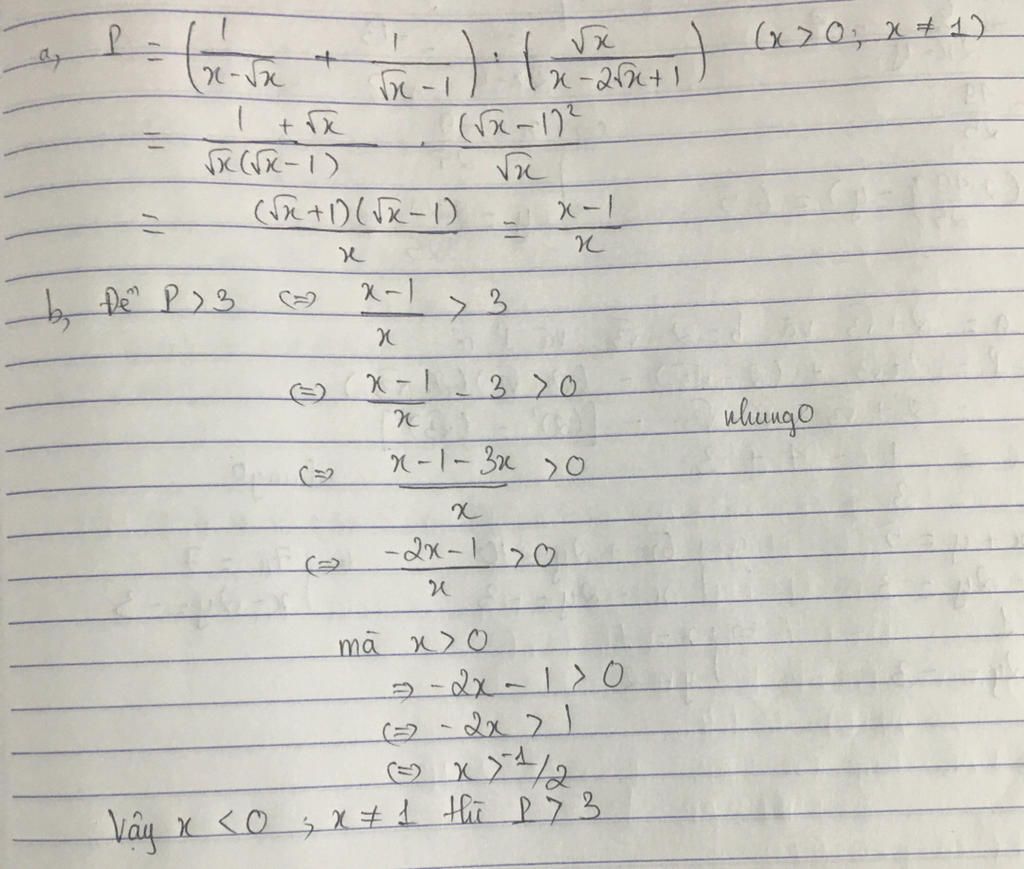 a, P = (1/(x-√x) + 1/(√x-1)) : (√x/(x-2√x+1)) (x > 0; x ≠ 1)
= (1+√x)/(√x(√x-1)) . (√x-1)²/√x
= (√x+1)(√x-1)/x = (x-1)/x
b, Để P > 3 <=> (x-1)/x > 3
<=> (x-1)/x - 3 > 0
nhung0
<=> (x-1-3x)/x > 0
<=> (-2x-1)/x > 0
mà x > 0
=> -2x - 1 > 0
<=> -2x > 1
<=> x > -1/2
Vậy x < 0 ; x ≠ 1 thì P > 3